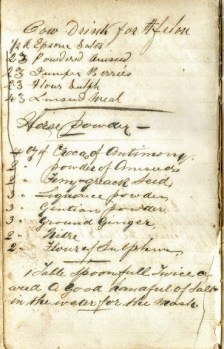 Cow Drink for # Felon
Epsom Salts
2℥ Powdered Aniseed
2℥ Juniper Berries
2℥ Flour Sulph
4℥ Linseed Meal
Horse Powder —
4 Oz Crocq of Antimony
2 " Powder of Aniseed
2 " Fenugreack Seed
3 " powder
3 " Gentian powder
3 " Ground Ginger
2 " Nitre
2 " Flour of Sulphur
1 Table Spoonfull Twice a
weed a Good handful of Salt
in the water for the Mash